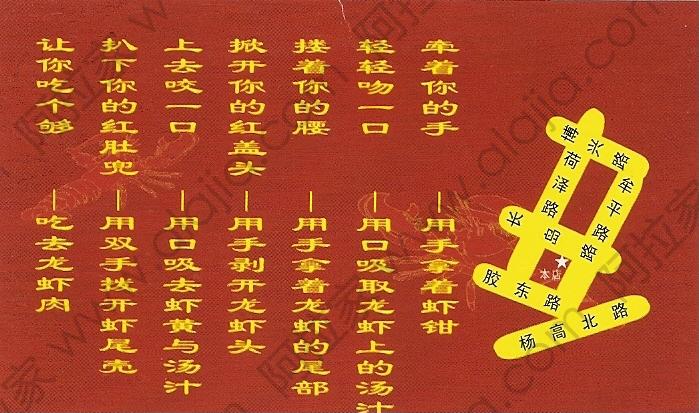 牵着你的手——用手拿着虾钳
轻轻吻一口——用口吸取龙虾上的汤汁
搂着你的腰——用手拿着龙虾的尾部
掀开你的红盖头——用手剥开龙虾头
上去咬一口——用口吸去虾黄与汤汁
扒下你的红肚兜——用双手拨开虾尾壳
让你吃个够——吃去龙虾肉
博兴路
荷泽路
牟平路
长岛路
本店
胶东路
杨高北路
阿拉家 www.alajia.com